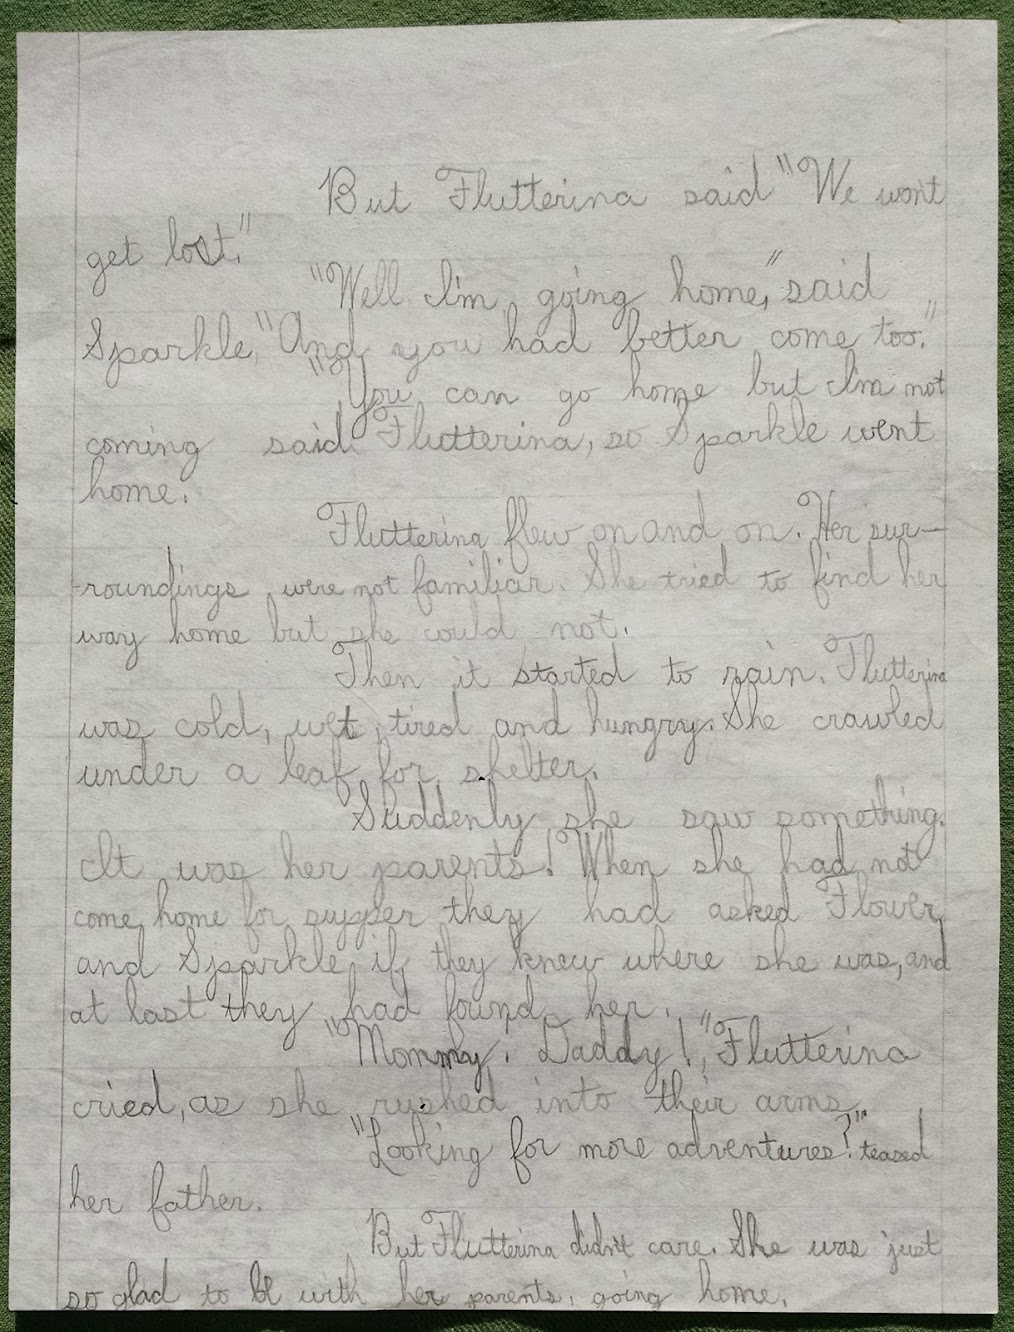 But Flutterina said "We won't
get lost."
"Well I'm going home," said
Sparkle, "And you had better come too."
"You can go home but I'm not
coming said Flutterina, so Sparkle went
home.
Flutterina flew on and on. Her sur-
-roundings were not familiar. She tried to find her
way home but she could not.
Then it started to rain. Flutterina
was cold, wet, tired and hungry. She crawled
under a leaf for shelter.
Suddenly she saw something.
It was her parents! When she had not
come home for supper they had asked Flower,
and Sparkle, if they knew where she was, and
at last they had found her.
"Mommy! Daddy!," Flutterina
cried, as she rushed into their arms.
"Looking for more adventures?" teased
her father.
But Flutterina didn't care. She was just
so glad to be with her parents, going home.